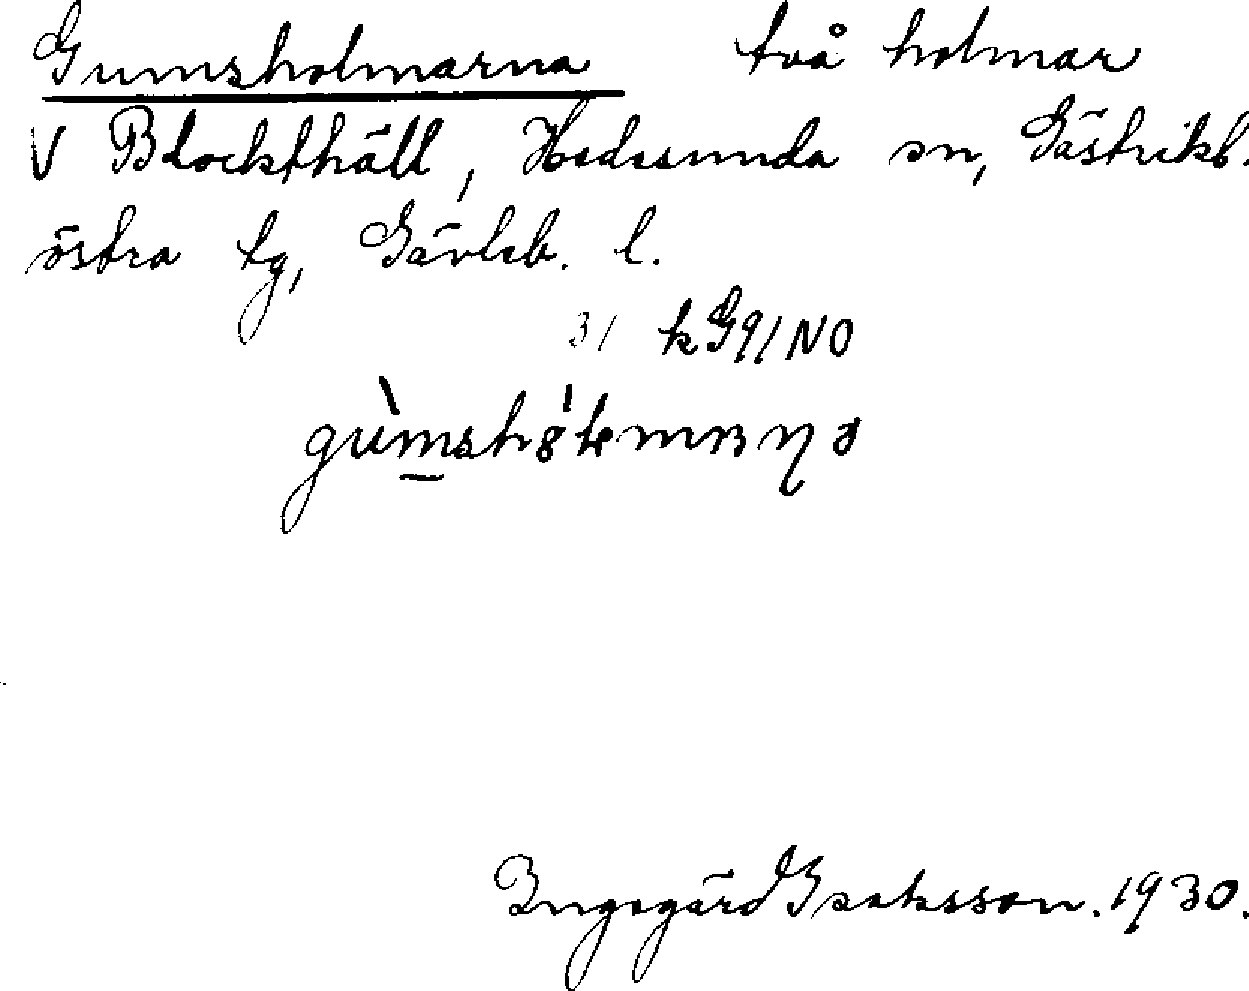 Gumsholmarna två holmar
V Blockthäll, Hedesunda sn, Gästrikl.
östra tg, Gävleb. l.
31 kG91NO
Ingegärd Isaksson. 1930.